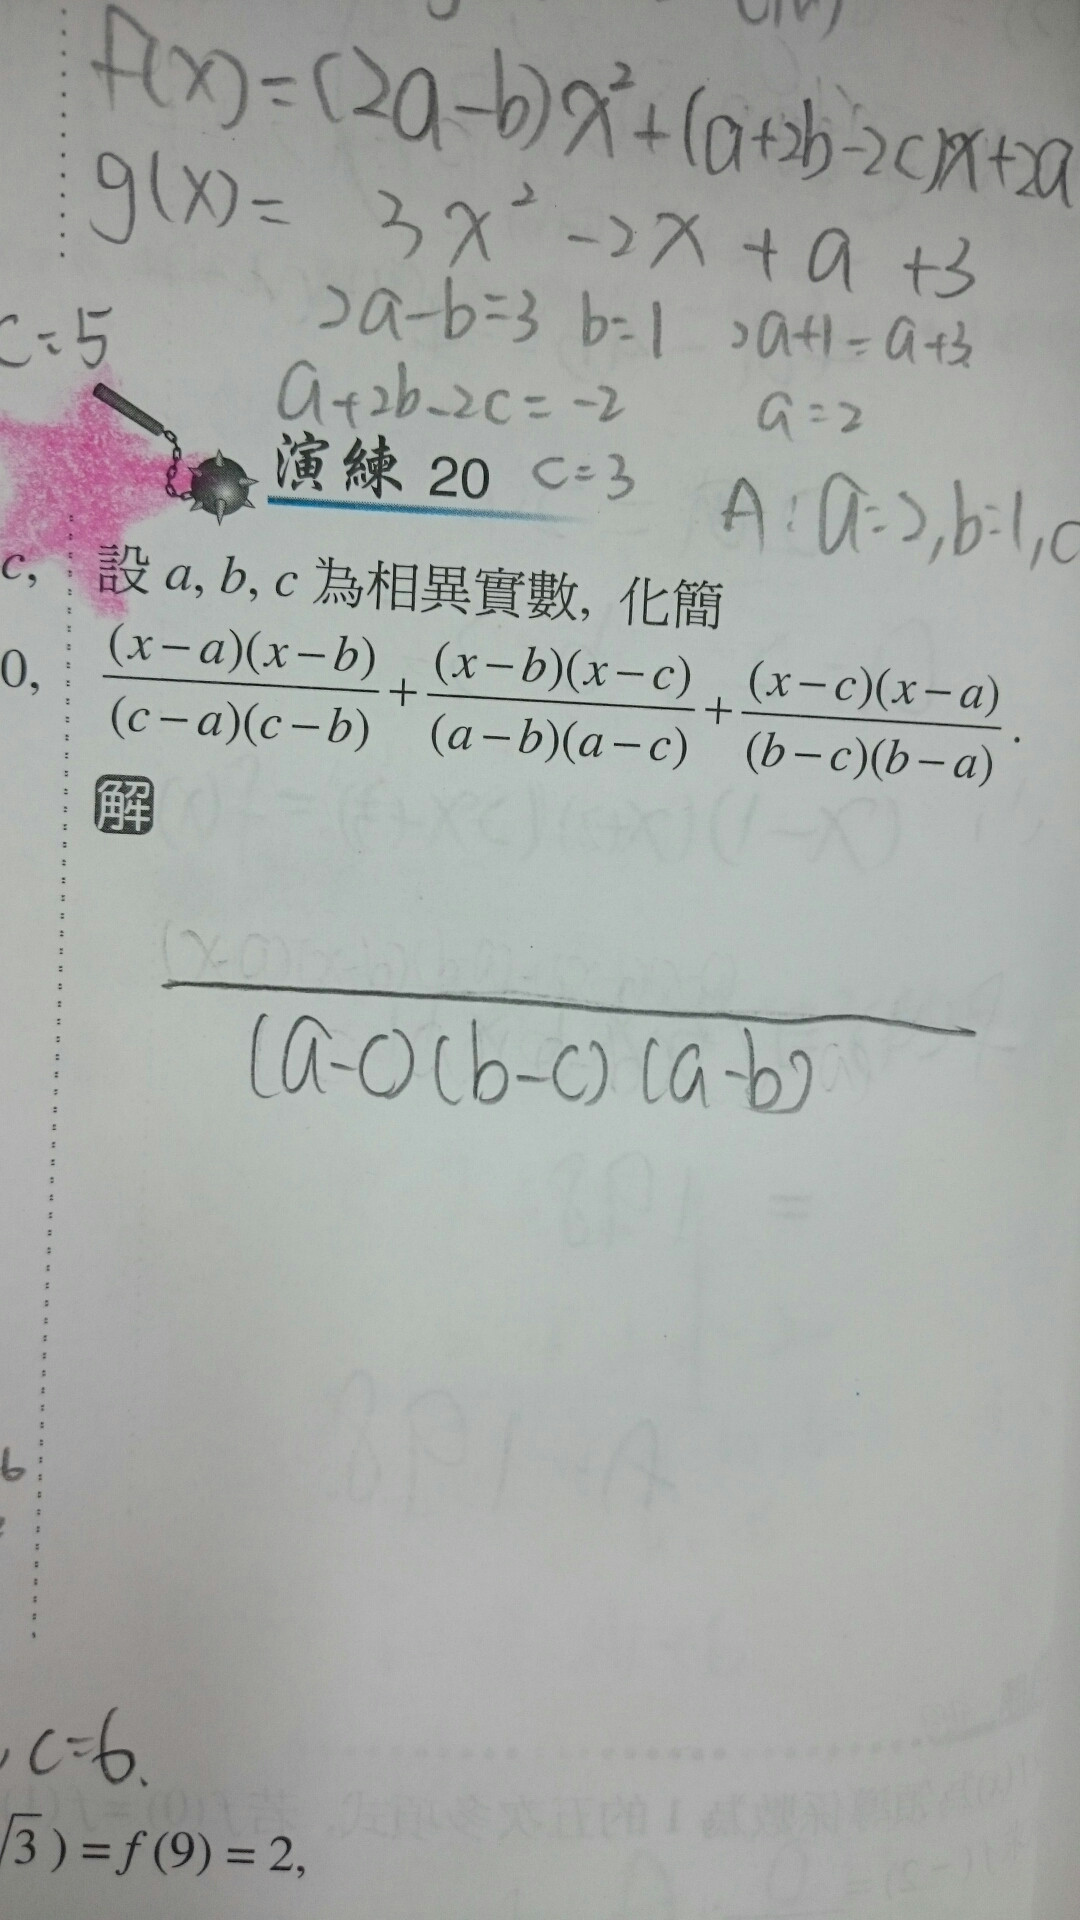 f(x)=(2a-b)x²+(a+2b-2c)x+2a
g(x)= 3x²-2x+a+3
2a-b=3 b=1 2a+1=a+3
c=5
a+2b-2c=-2 a=2
演練 20 c=3
A:a=2,b=1,c
c, 設 a, b, c 為相異實數, 化簡
0, (x-a)(x-b)/(c-a)(c-b) + (x-b)(x-c)/(a-b)(a-c) + (x-c)(x-a)/(b-c)(b-a) .
解
(a-c)(b-c)(a-b)
b
, c=6.
√3)=f(9)=2,